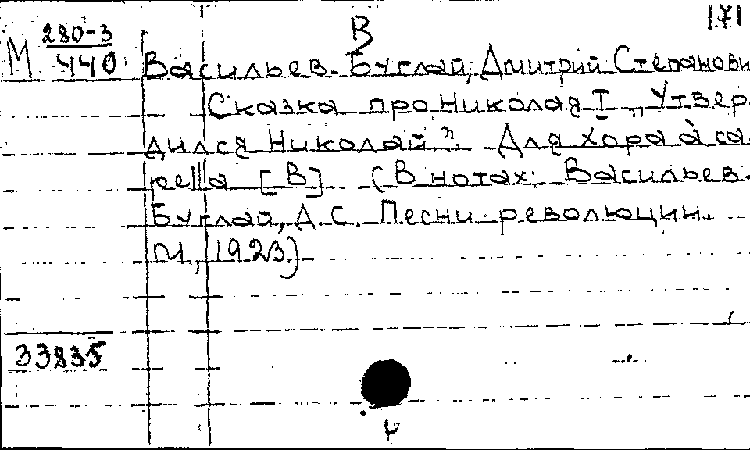 280-3 В 171
М 440 Васильев-Буглай, Дмитрий Степанови
Сказка про Николая I „Утвер
дился Николай". Для хора а ca
pella [В] (В нотах: Васильев-
Буглай, Д.С. Песни революции.
М., 1923.)
33835
4